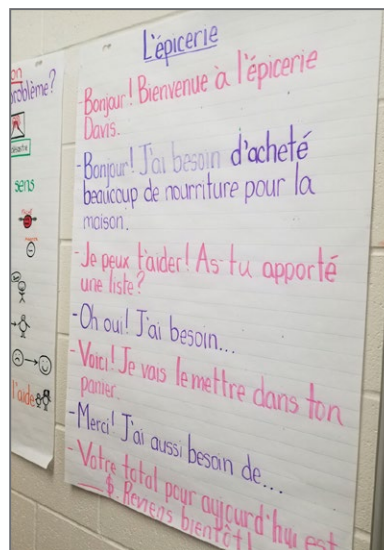 L'épicerie
-Bonjour! Bienvenue à l'épicerie
Davis.
-Bonjour! J'ai besoin d'acheté
beaucoup de nourriture pour la
maison.
-Je peux t'aider! As-tu apporté
une liste?
-Oh oui! J'ai besoin...
-Voici! Je vais le mettre dans ton
panier.
-Merci! J'ai aussi besoin de...
-Votre total pour aujourd'hui est
___$. Reviens bientôt!
on
problème?
sens
l'aide